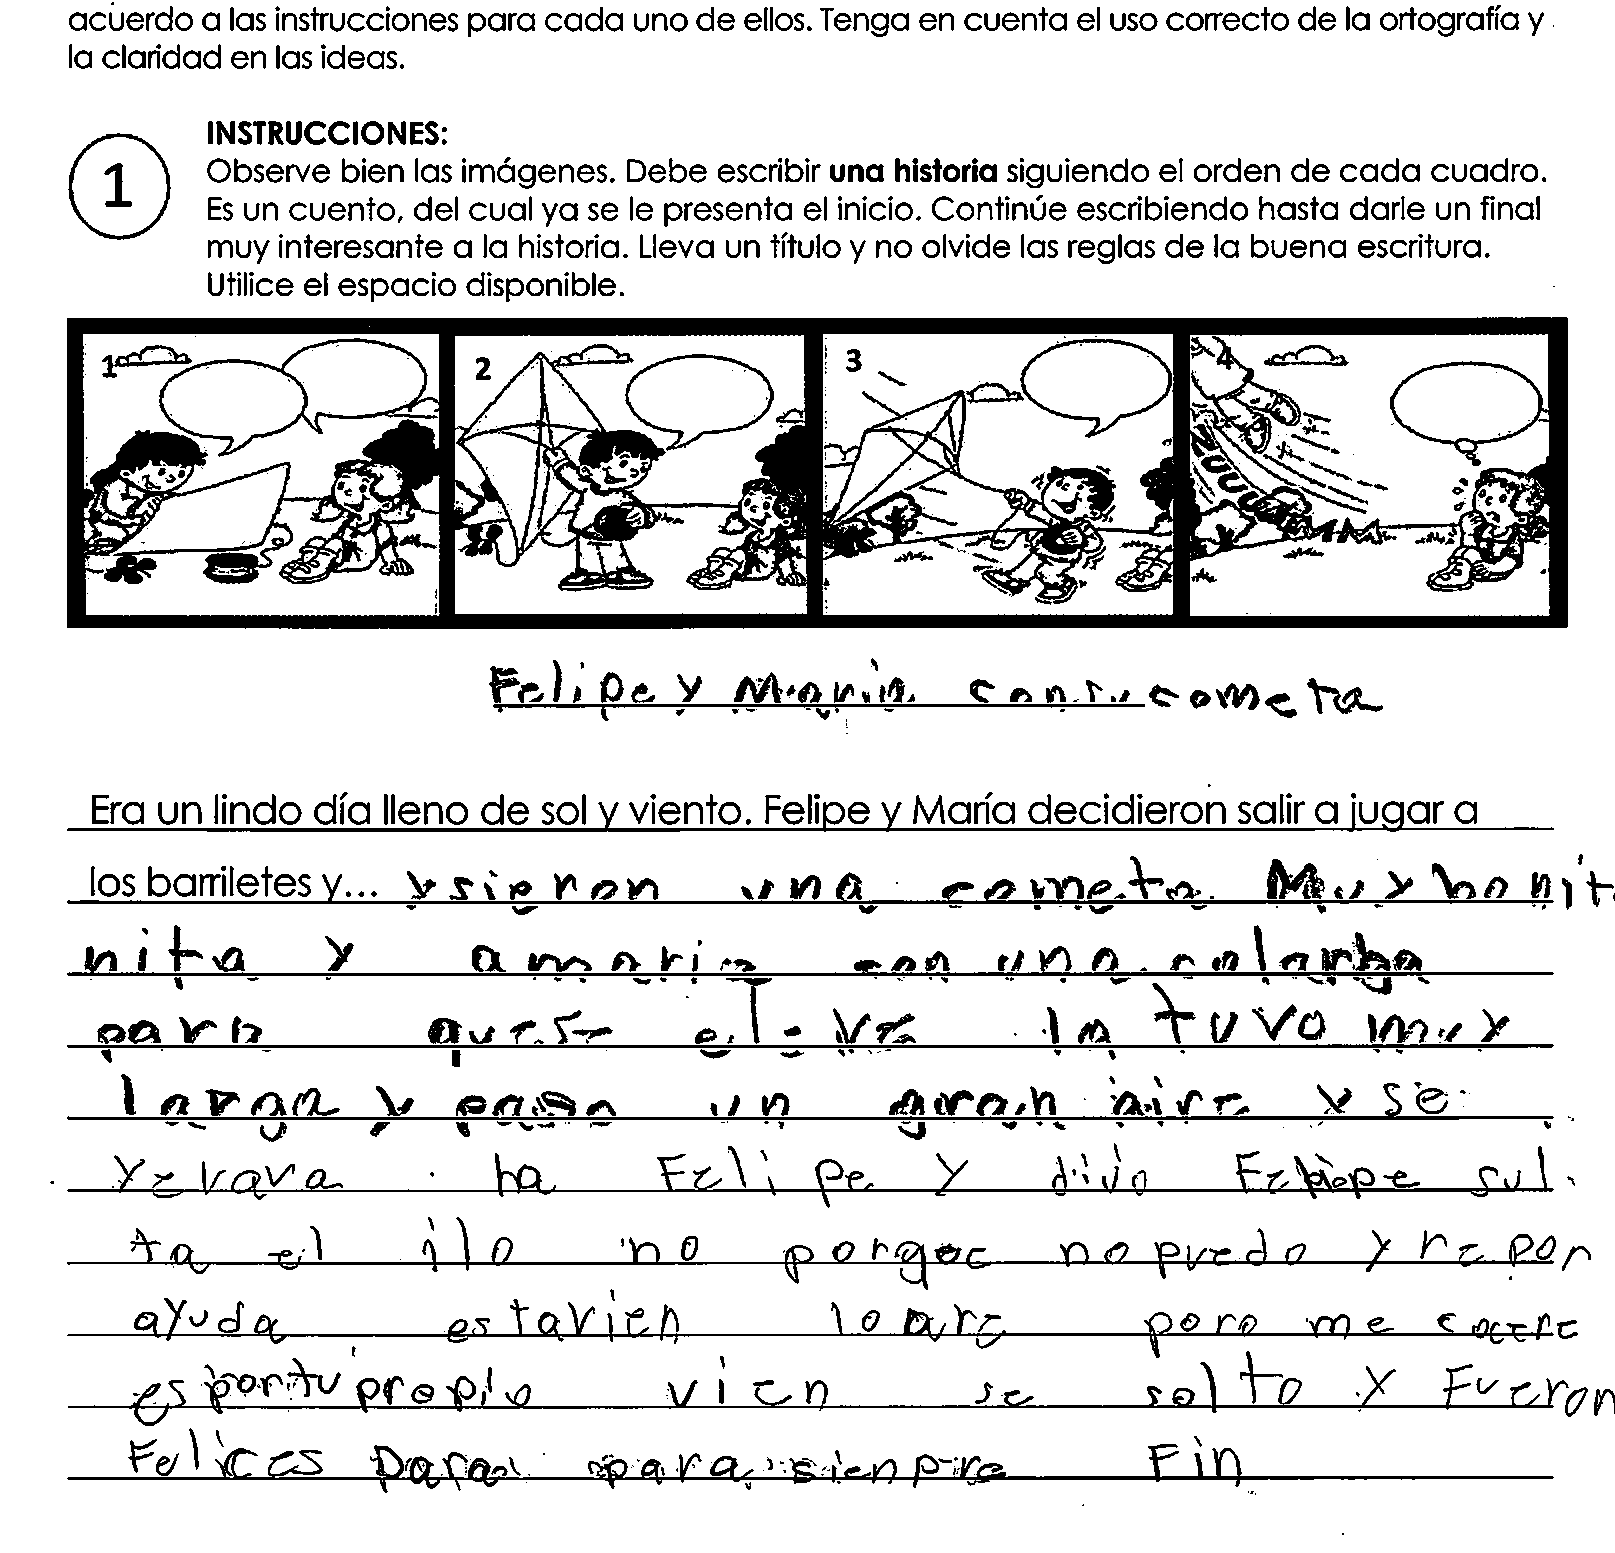 acuerdo a las instrucciones para cada uno de ellos. Tenga en cuenta el uso correcto de la ortografía y
la claridad en las ideas.
1
INSTRUCCIONES:
Observe bien las imágenes. Debe escribir una historia siguiendo el orden de cada cuadro.
Es un cuento, del cual ya se le presenta el inicio. Continúe escribiendo hasta darle un final
muy interesante a la historia. Lleva un título y no olvide las reglas de la buena escritura.
Utilice el espacio disponible.
1 2 3 4
Felipe y María con su cometa
Era un lindo día lleno de sol y viento. Felipe y María decidieron salir a jugar a
los barriletes y... ysieron una cometa Muy bonit
nita y con una
para que se eleve la tuvo muy
larga y paso un gran aire y se
yevava ha Felipe y dijo Felipe sul
ta el ilo no porqoe no puedo y
ayuda estavien loare pero me
es por tu propio vien se solto y Fueron
Felices para para sienpre Fin